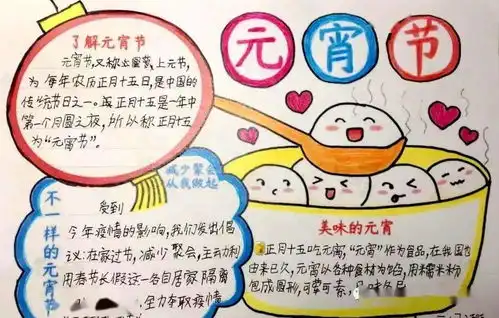 元宵节
了解元宵节
元宵节,又称上元节,
为每年农历正月十五日,是中国的
传统节日之一。正月十五是一年中
第一个月圆之夜,所以称正月十五
为“元宵节”。
减少聚会
从我做起
不一样的元宵节
受到
今年疫情的影响,我们发出倡
议:在家过节,减少聚会,主动利
用春节长假这一各自居家隔离
全力夺取疫情
美味的元宵
正月十五吃元宵,“元宵”作为食品,在我国也
由来已久,元宵以各种食材为馅,用糯米粉
包成圆形,可荤可素,风味各异